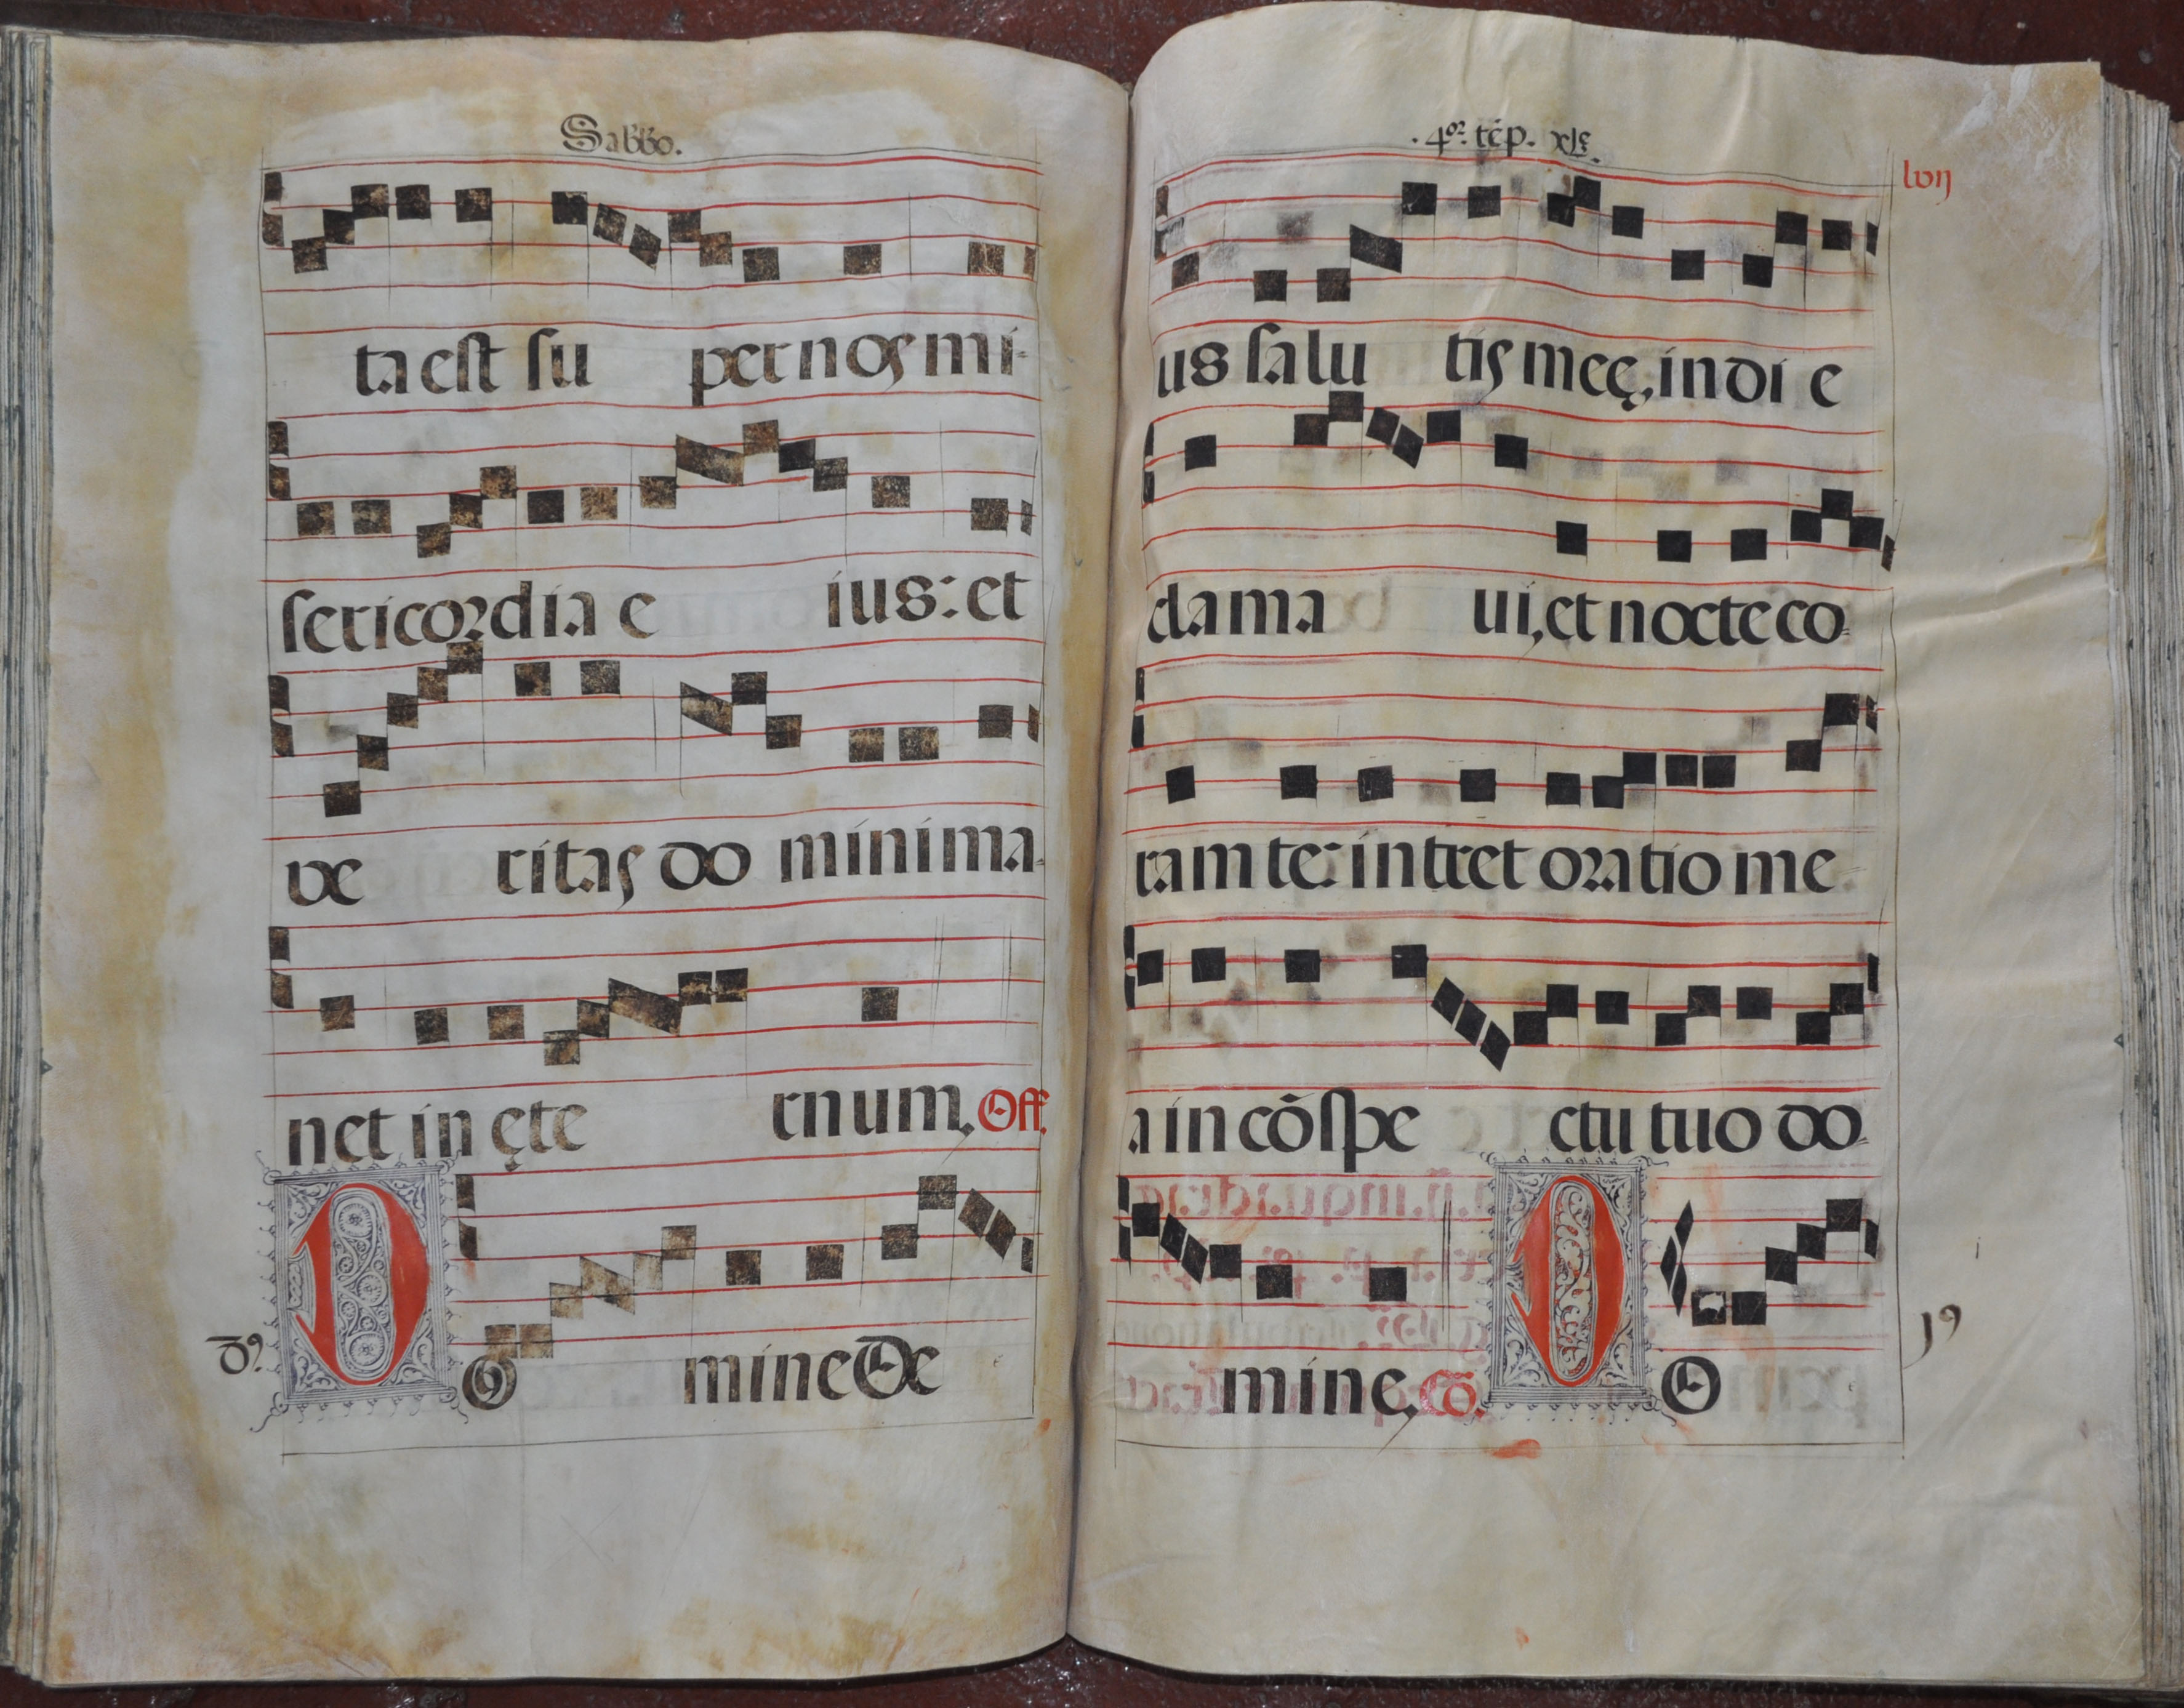 Sabbo.
ta est su per nos mi-
sericordia e ius: et
ve ritas do mini ma-
net in ęte rnum, Off.
D O mine De
.4or. tẽp. xle.
lvij
us salu tis meę, in di e
clama ui, et nocte co-
ram te: intret oratio me-
a in cõspe ctu tuo do-
mine, Cõ. D O